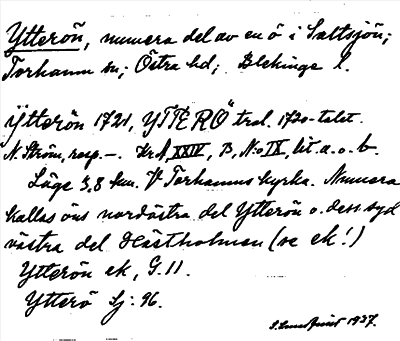 Ytterön, numera del av en ö i Saltsjön;
Torhamn sn; Östra hd; Blekinge l.
Ytterön 1721, YTTERÖ trol. 1720-talet.
N. Ström, resp. —. Kr.A, XXIV, B, N:o IX, lit. a. o. b.
Läge 3,8 km. V Torhamns kyrka. Numera
kallas öns nordöstra del Ytterön o. dess syd
västra del Hästholmen (se ek!)
Ytterön ek, G. 11.
Ytterö Sj: 96.
S. Lundqvist 1937.